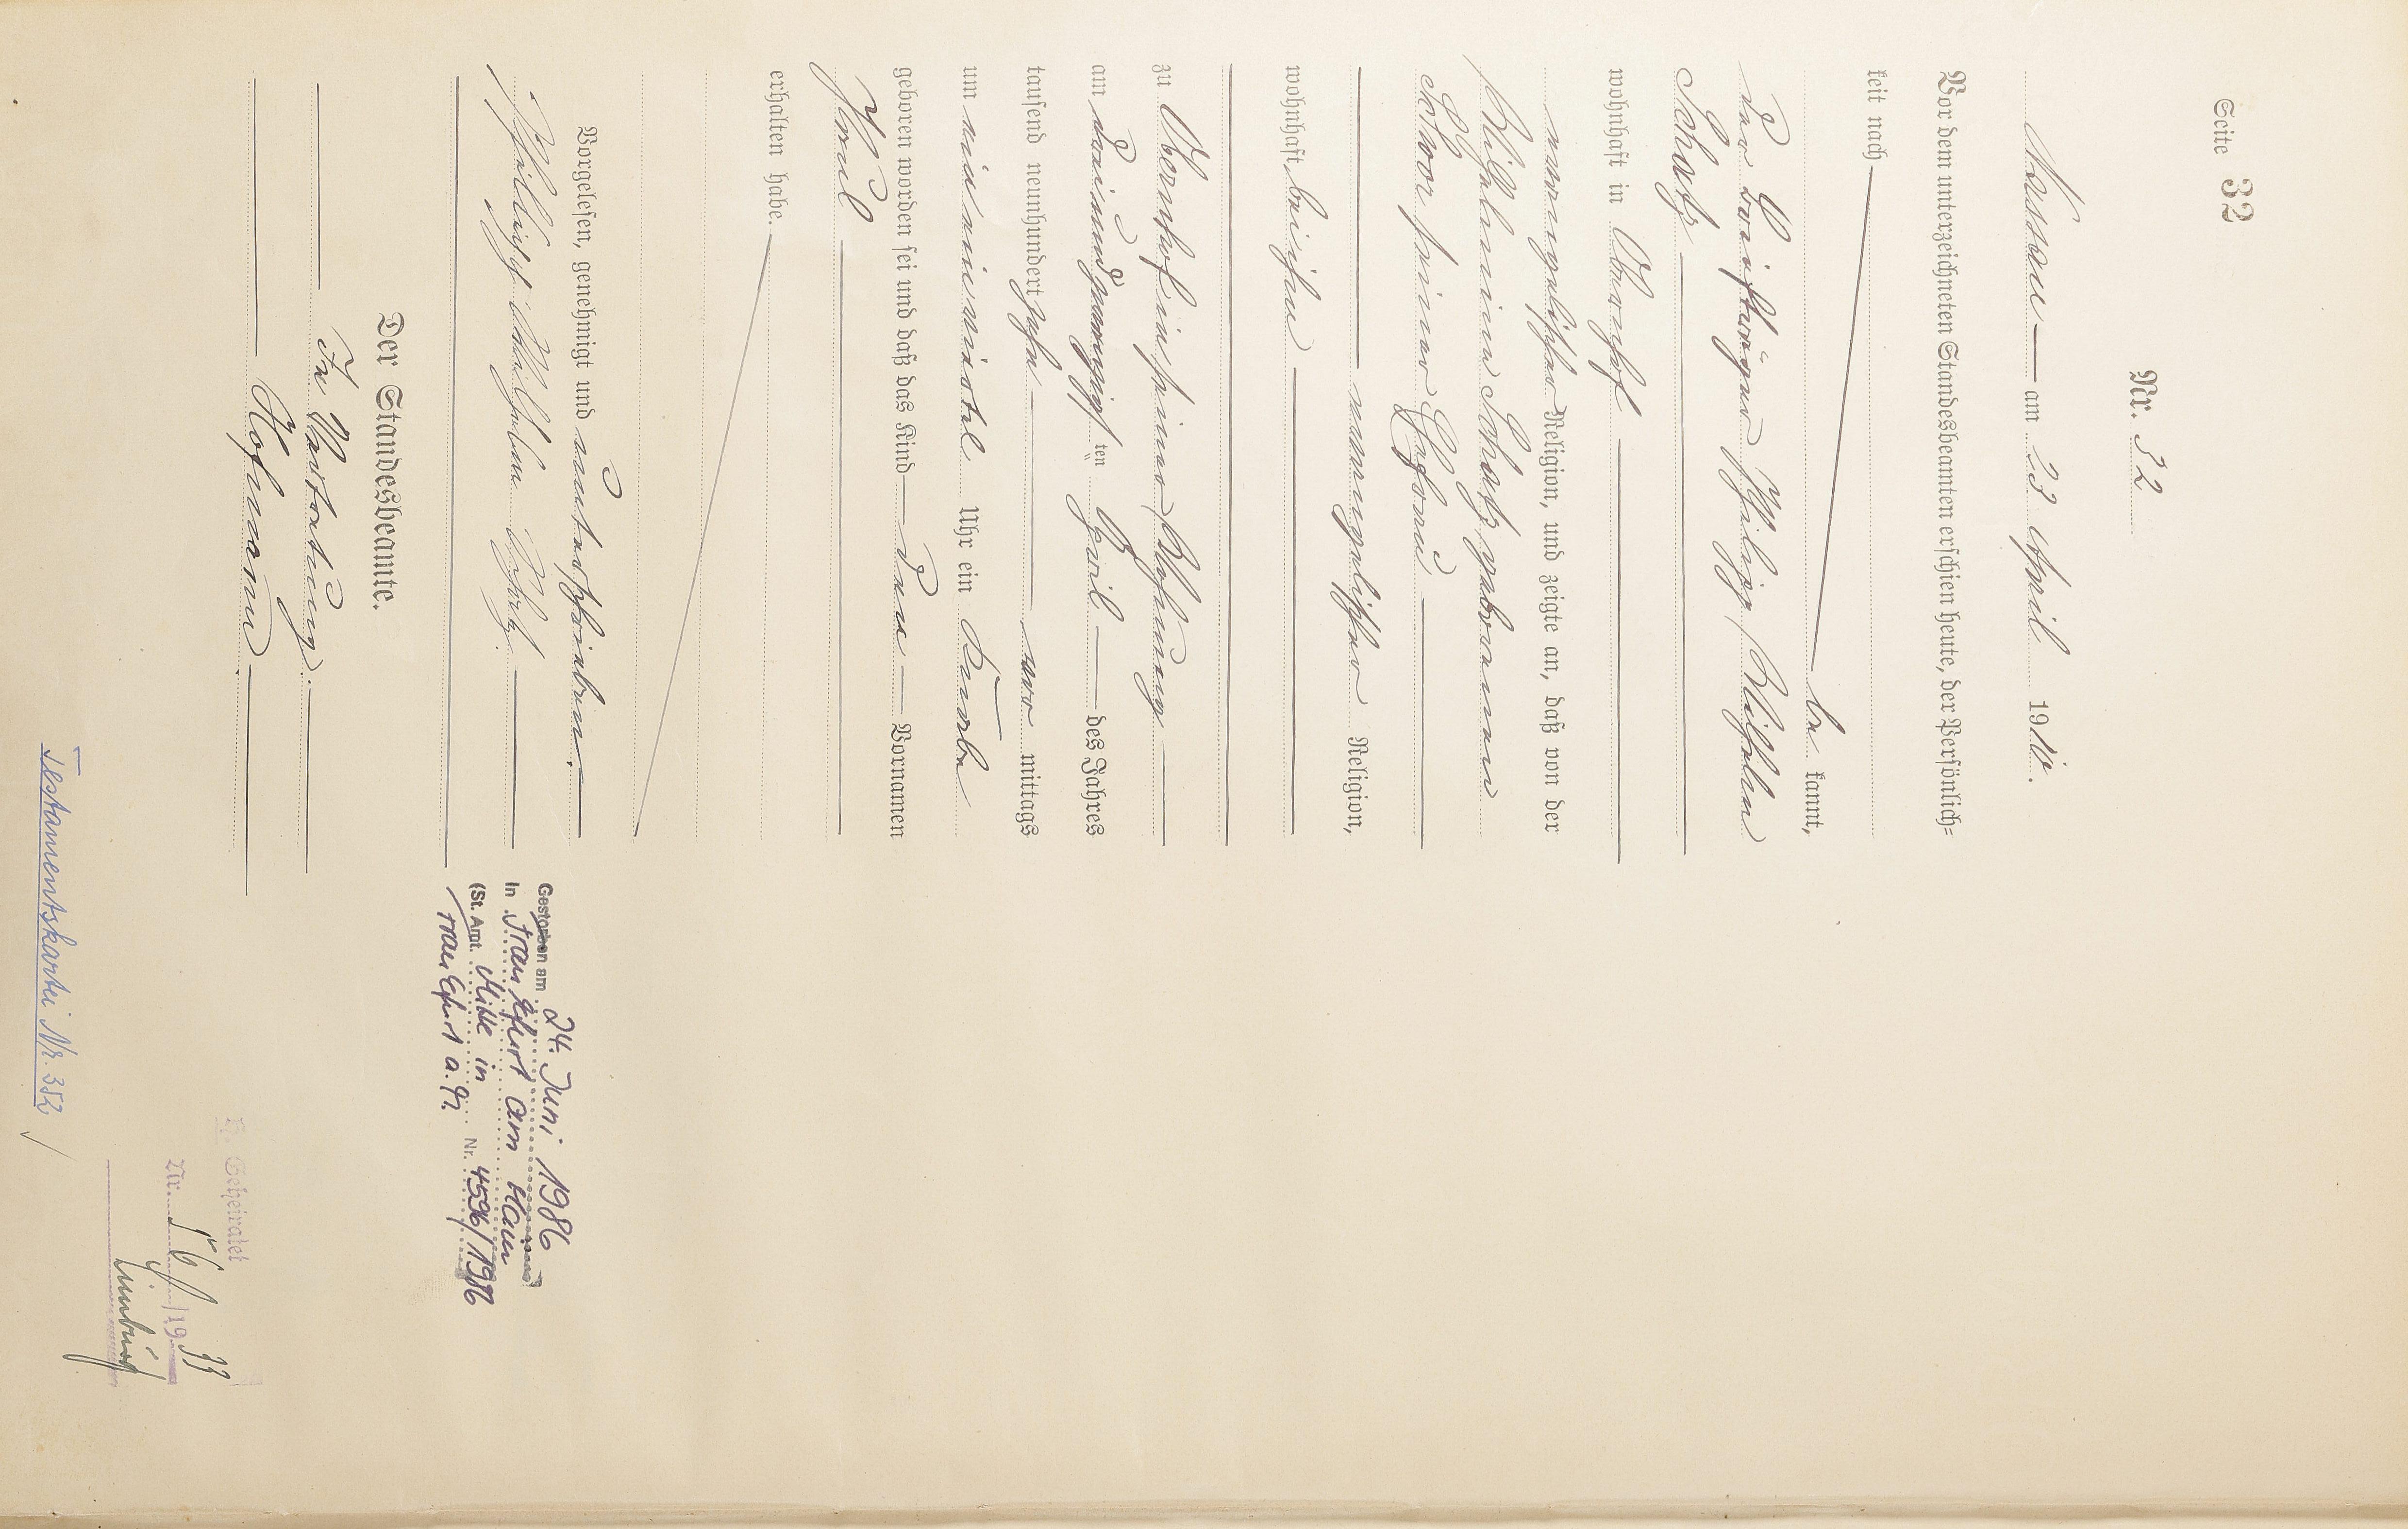 Seite 32
Nr. 32
Nassau am 23 April 1910.
Vor dem unterzeichneten Standesbeamten erschien heute, der Persönlich=
keit nach
be kannt,
der Briefträger Philipp Wilhelm
Schatz
wohnhaft in Obernhof
evangelischer Religion, und zeigte an, daß von der
Wilhelmine Schatz geborenen
Schor seiner Ehefrau
evangelischer Religion,
wohnhaft bei ihm
zu Obernhof in seiner Wohnung
am dreiundzwanzigsten ten April des Jahres
tausend neunhundert zehn vor mittags
um ein einviertel Uhr ein Knabe
geboren worden sei und daß das Kind den Vornamen
Paul
erhalten habe.
Vorgelesen, genehmigt und unterschrieben
Philipp Wilhelm Schatz
Der Standesbeamte.
In Vertretung.
Hofmann
Gestorben am 24. Juni 1986
in Frankfurt am Main
(St. Amt Mitte in
Frankfurt a. M. Nr. 4596/1986
Geheiratet
Nr. 56/1933
Limburg
Testamentskartei Nr. 352